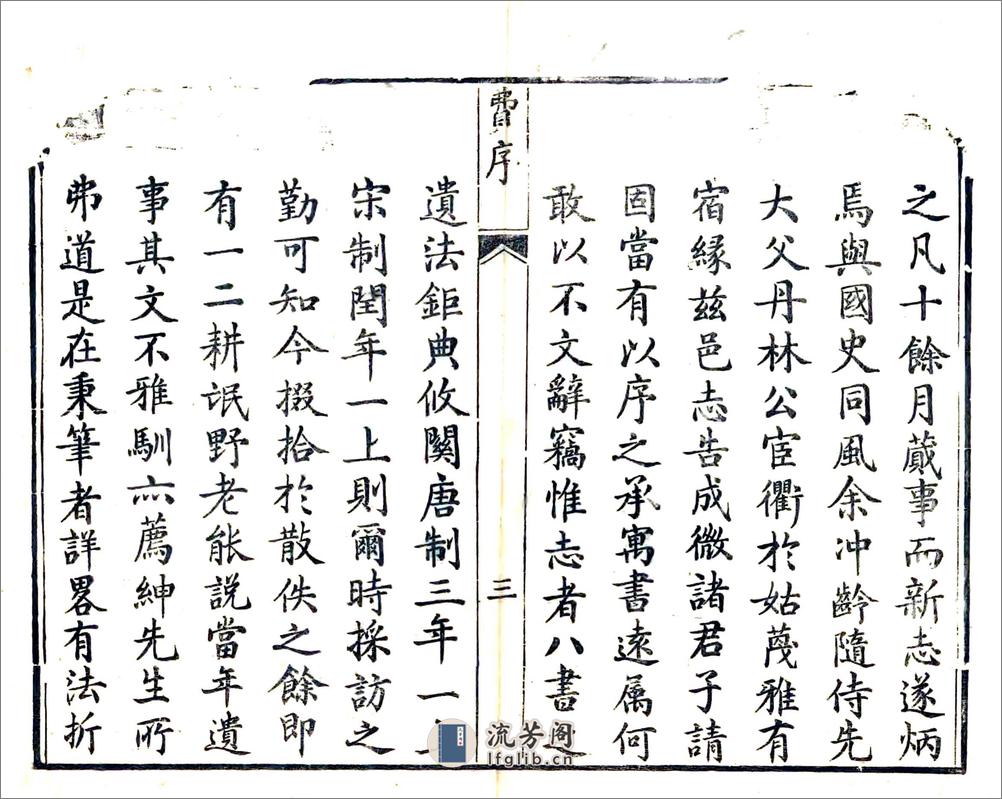 之凡十餘月蕆事而新志遂炳
焉與國史同風余冲齡隨侍先
大父丹林公宦衢於姑蔑雅有
宿縁兹邑志告成微諸君子請
固當有以序之承寓書遠属何
敢以不文辭竊惟志者八書之
費序
三
遺法鉅典攸關唐制三年一上
宋制閏年一上則爾時採訪之
勤可知今掇拾於散佚之餘即
有一二耕氓野老能説當年遺
事其文不雅馴亦薦紳先生所
弗道是在秉筆者詳畧有法折
流芳阁
lfglib.cn